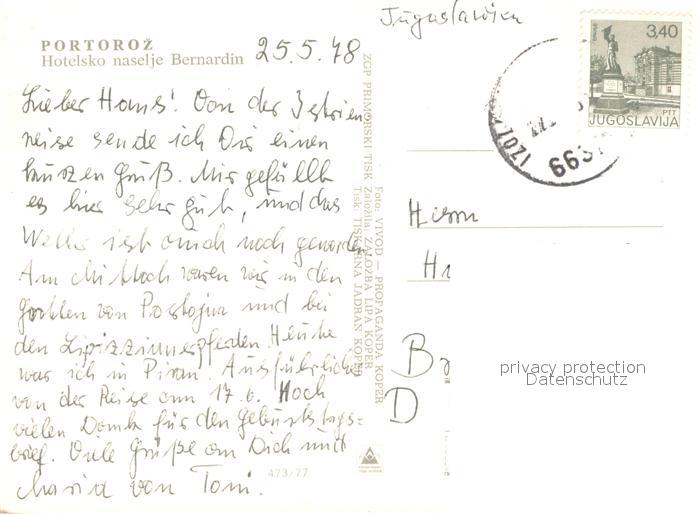 Jugoslawien
PORTOROŽ
Hotelsko naselje Bernardin
25.5.78
Lieber Hans! Von der Istrien
reise sende ich Dir einen
kurzen Gruß. Mir gefällt
es hier sehr gut, und das
Wetter ist auch noch geworden.
Am Mittwoch waren wir in den
Grotten von Postojna und bei
den Lipizzanerpferden. Heute
war ich in Piran. Ausführlicher
von der Reise am 17.6. Hoch
vielen Dank für den Geburtstags=
brief. Viele Grüße an Dich und
Maria von Toni.
ZGP PRIMORSKI TISK Založila ZALOŽBA LIPA KOPER
Foto VIVOD — PROPAGANDA KOPER
Tisk: TISKARNA JADRAN KOPER
473/77
3,40
PTT
JUGOSLAVIJA
IZOLA
Herrn
H
B
D
privacy protection
Datenschutz